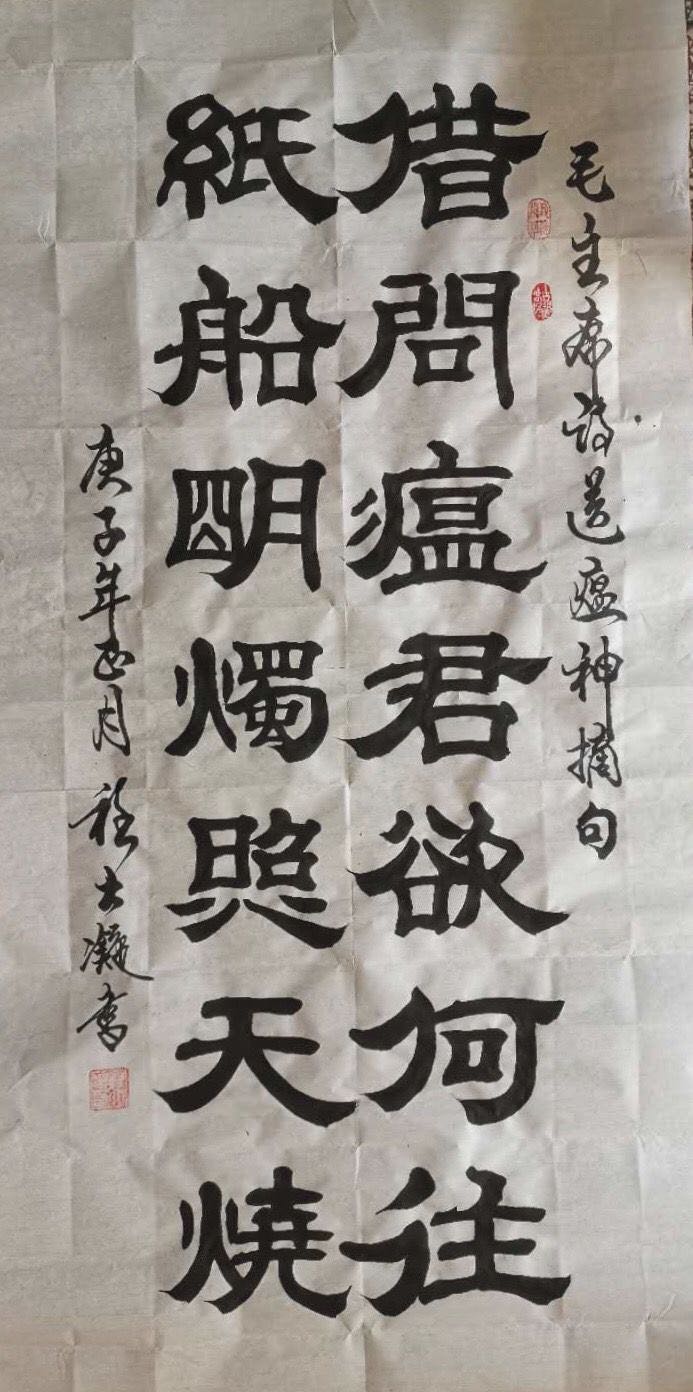 毛主席詩送瘟神摘句
借問瘟君欲何往
紙船明燭照天燒
庚子年正月程士凝書